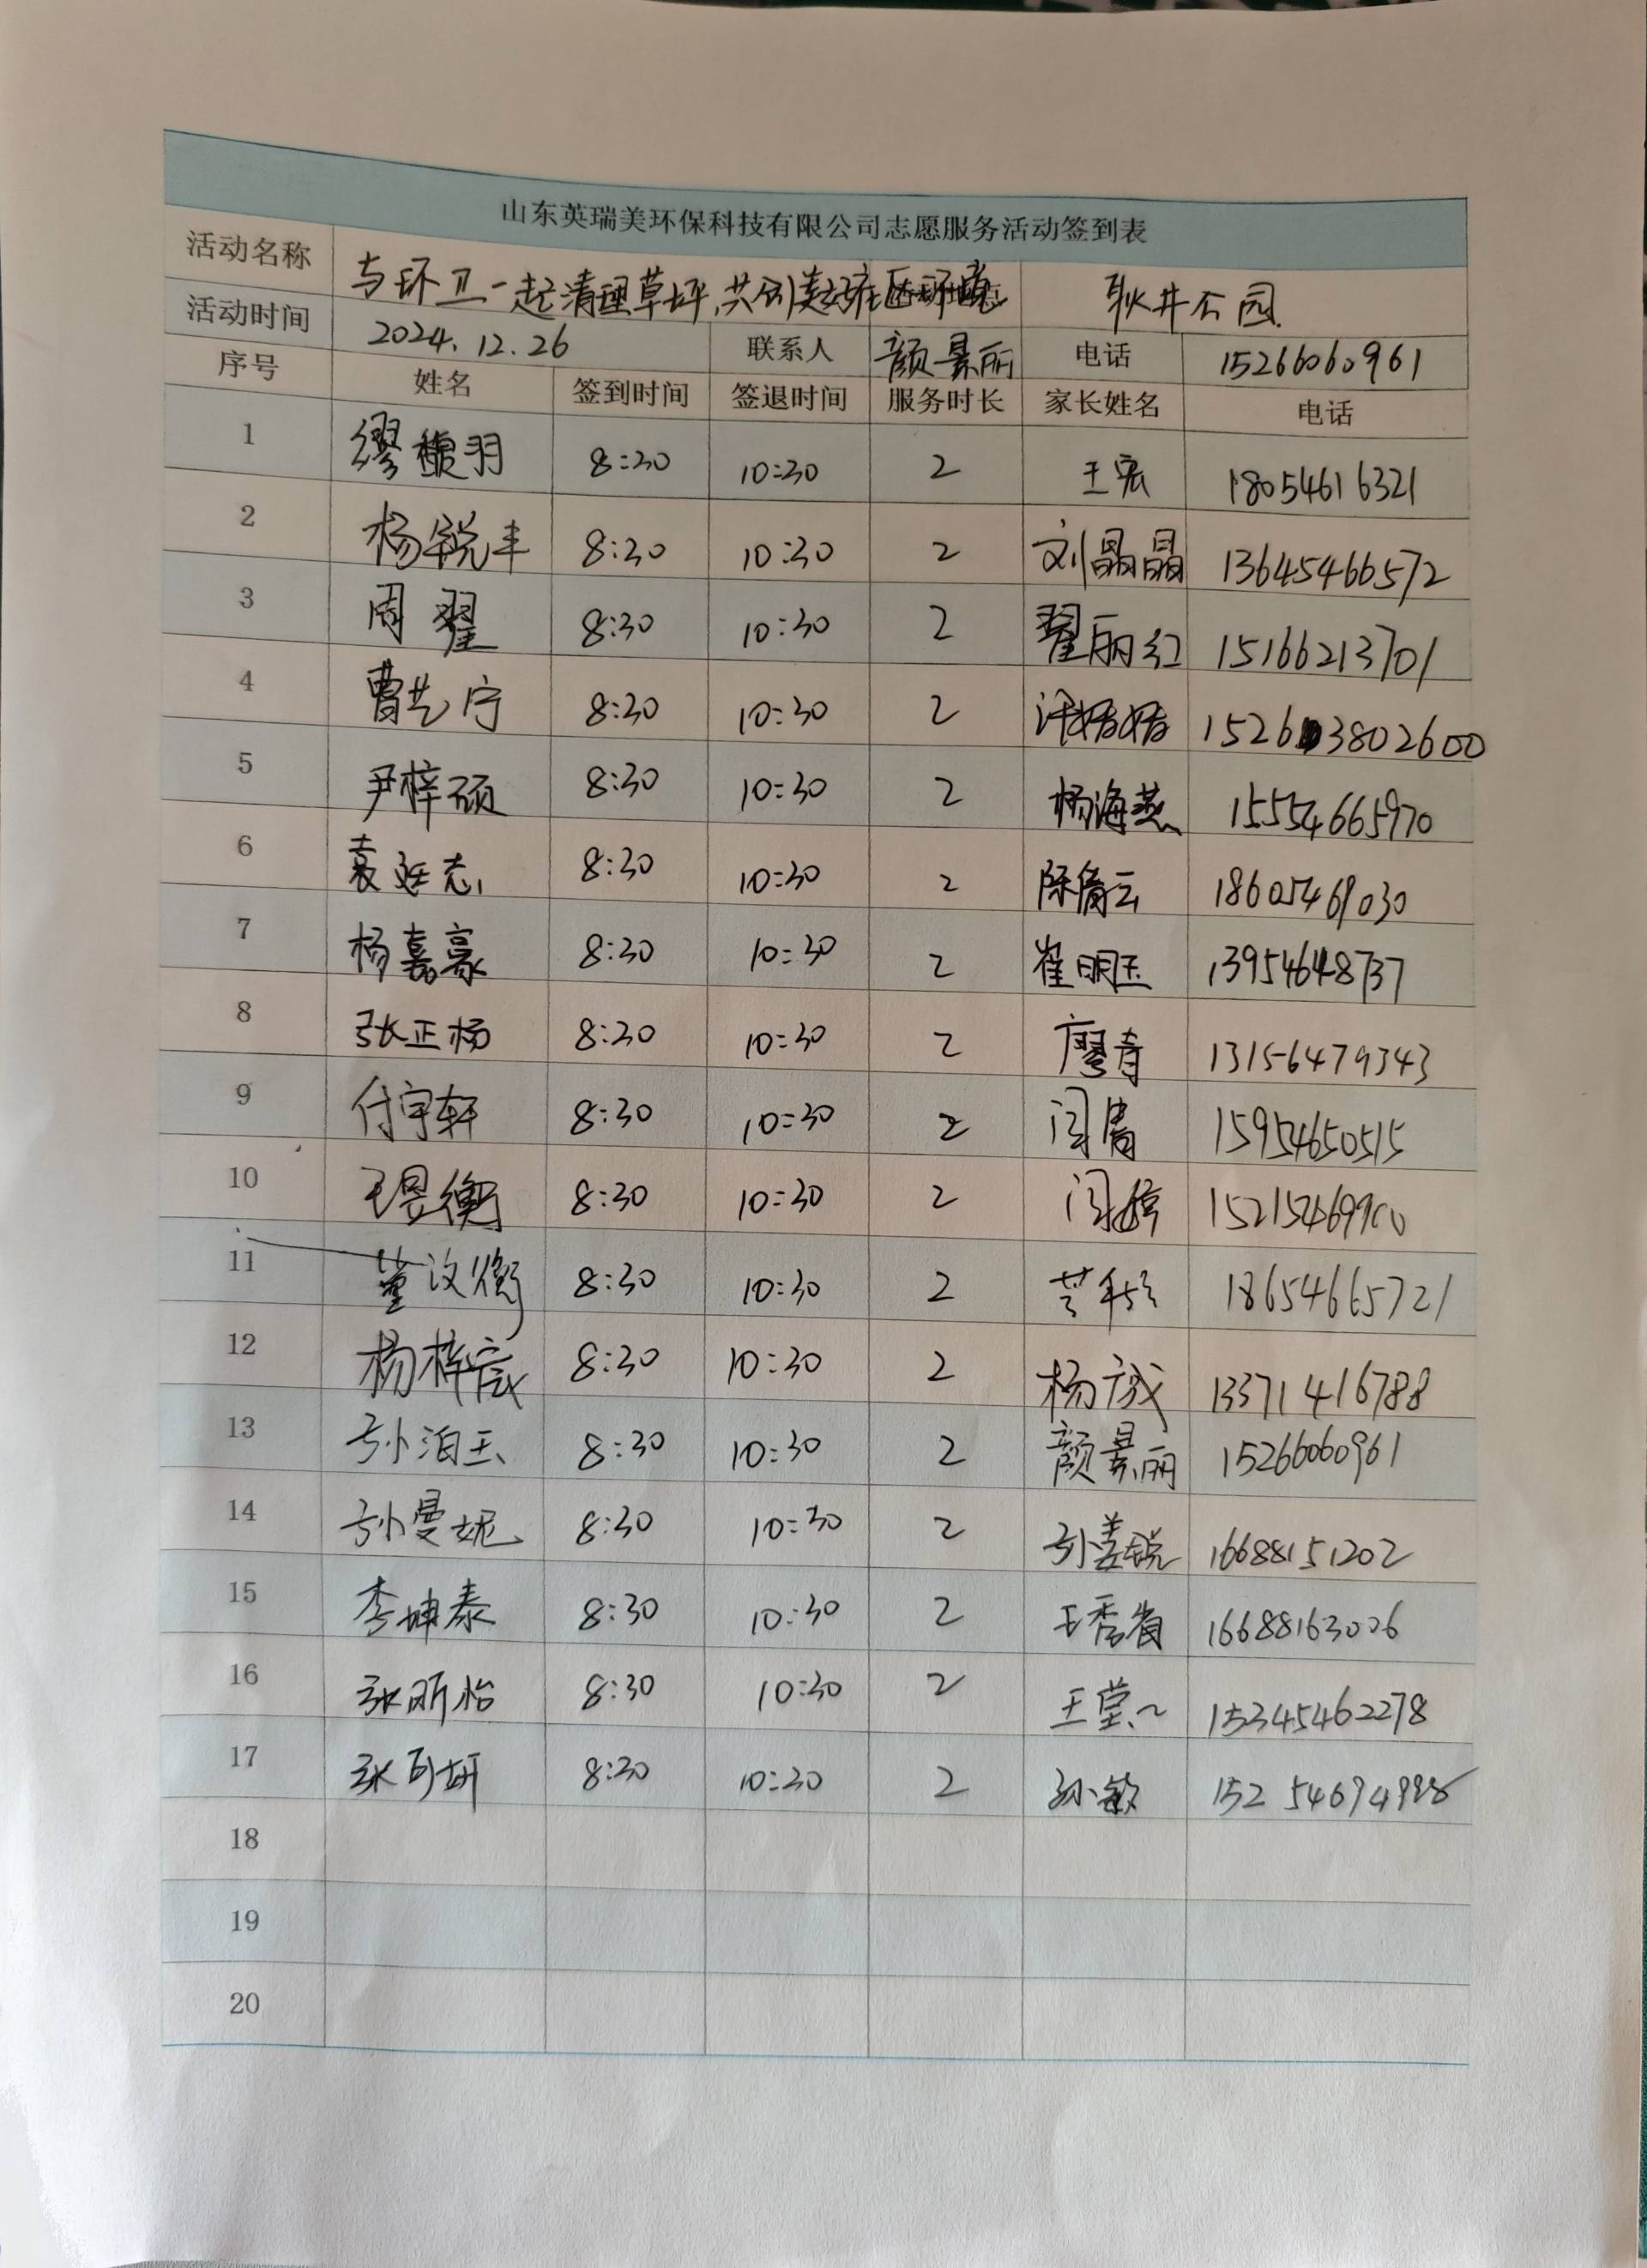 山东英瑞美环保科技有限公司志愿服务活动签到表
活动名称 与环卫一起清理草坪,共创美好社区环境 耿井公园
活动时间 2024.12.26 联系人 颜景丽 电话 15266060961
序号 姓名 签到时间 签退时间 服务时长 家长姓名 电话
1 缪羽 8:30 10:30 2 王宏 18054616321
2 杨锐丰 8:30 10:30 2 刘晶晶 13645466572
3 周翟 8:30 10:30 2 翟丽红 15166213701
4 曹艺宁 8:30 10:30 2 许婧婧
5 尹梓硕 8:30 10:30 2 杨海燕 15554665970
6 袁延志 8:30 10:30 2 陈云
7 杨嘉豪 8:30 10:30 2 崔明玉 13954648737
8 张正杨 8:30 10:30 2 廖青 13156479343
9 付宇轩 8:30 10:30 2 闫倩 15954650515
10 王昱衡 8:30 10:30 2 闫婷
11 董汶衡 8:30 10:30 2 18654665721
12 杨梓宸 8:30 10:30 2 杨诚 13371416788
13 孙泊玉 8:30 10:30 2 颜景丽 15266060961
14 孙曼妮 8:30 10:30 2 孙美锐 16688151202
15 李坤泰 8:30 10:30 2 王秀省 16688163006
16 张昕怡 8:30 10:30 2 王堂 15345462278
17 张可妍 8:30 10:30 2 孙敏
18
19
20